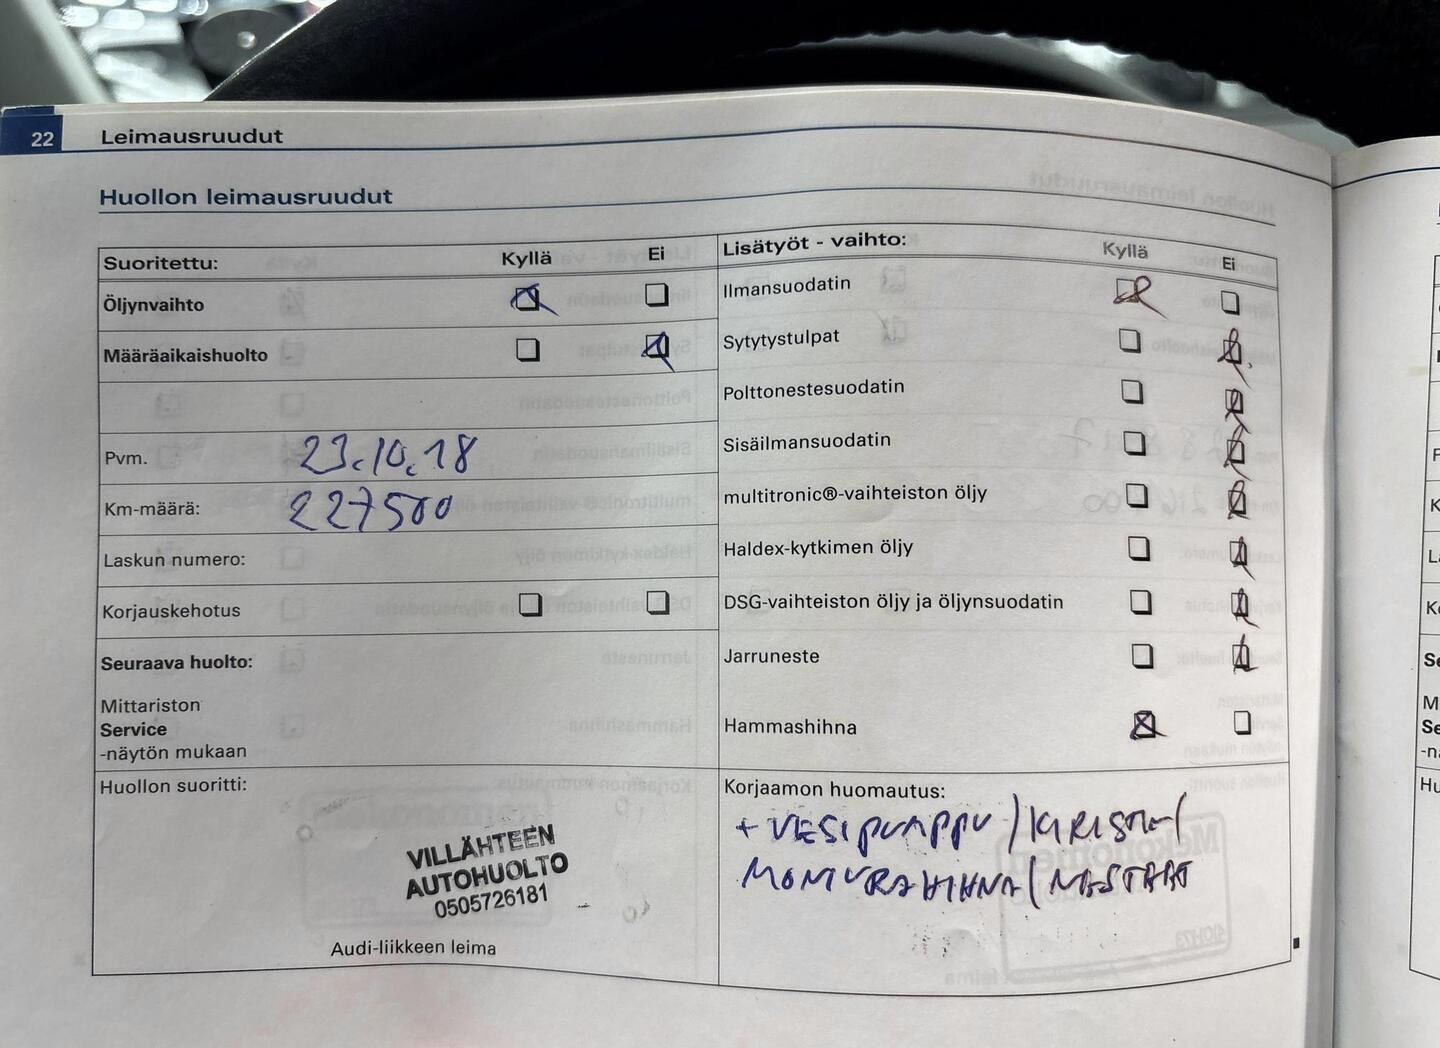 22 Leimausruudut
Huollon leimausruudut
Suoritettu: Kyllä Ei
Öljynvaihto
Määräaikaishuolto
Pvm. 23.10.18
Km-määrä: 227500
Laskun numero:
Korjauskehotus
Seuraava huolto:
Mittariston
Service
-näytön mukaan
Huollon suoritti:
VILLÄHTEEN
AUTOHUOLTO
0505726181
Audi-liikkeen leima
Lisätyöt - vaihto: Kyllä Ei
Ilmansuodatin
Sytytystulpat
Polttonestesuodatin
Sisäilmansuodatin
multitronic®-vaihteiston öljy
Haldex-kytkimen öljy
DSG-vaihteiston öljy ja öljynsuodatin
Jarruneste
Hammashihna
Korjaamon huomautus:
+ VESIPUMPPU /
MONIURAHIHNA / NESTEET